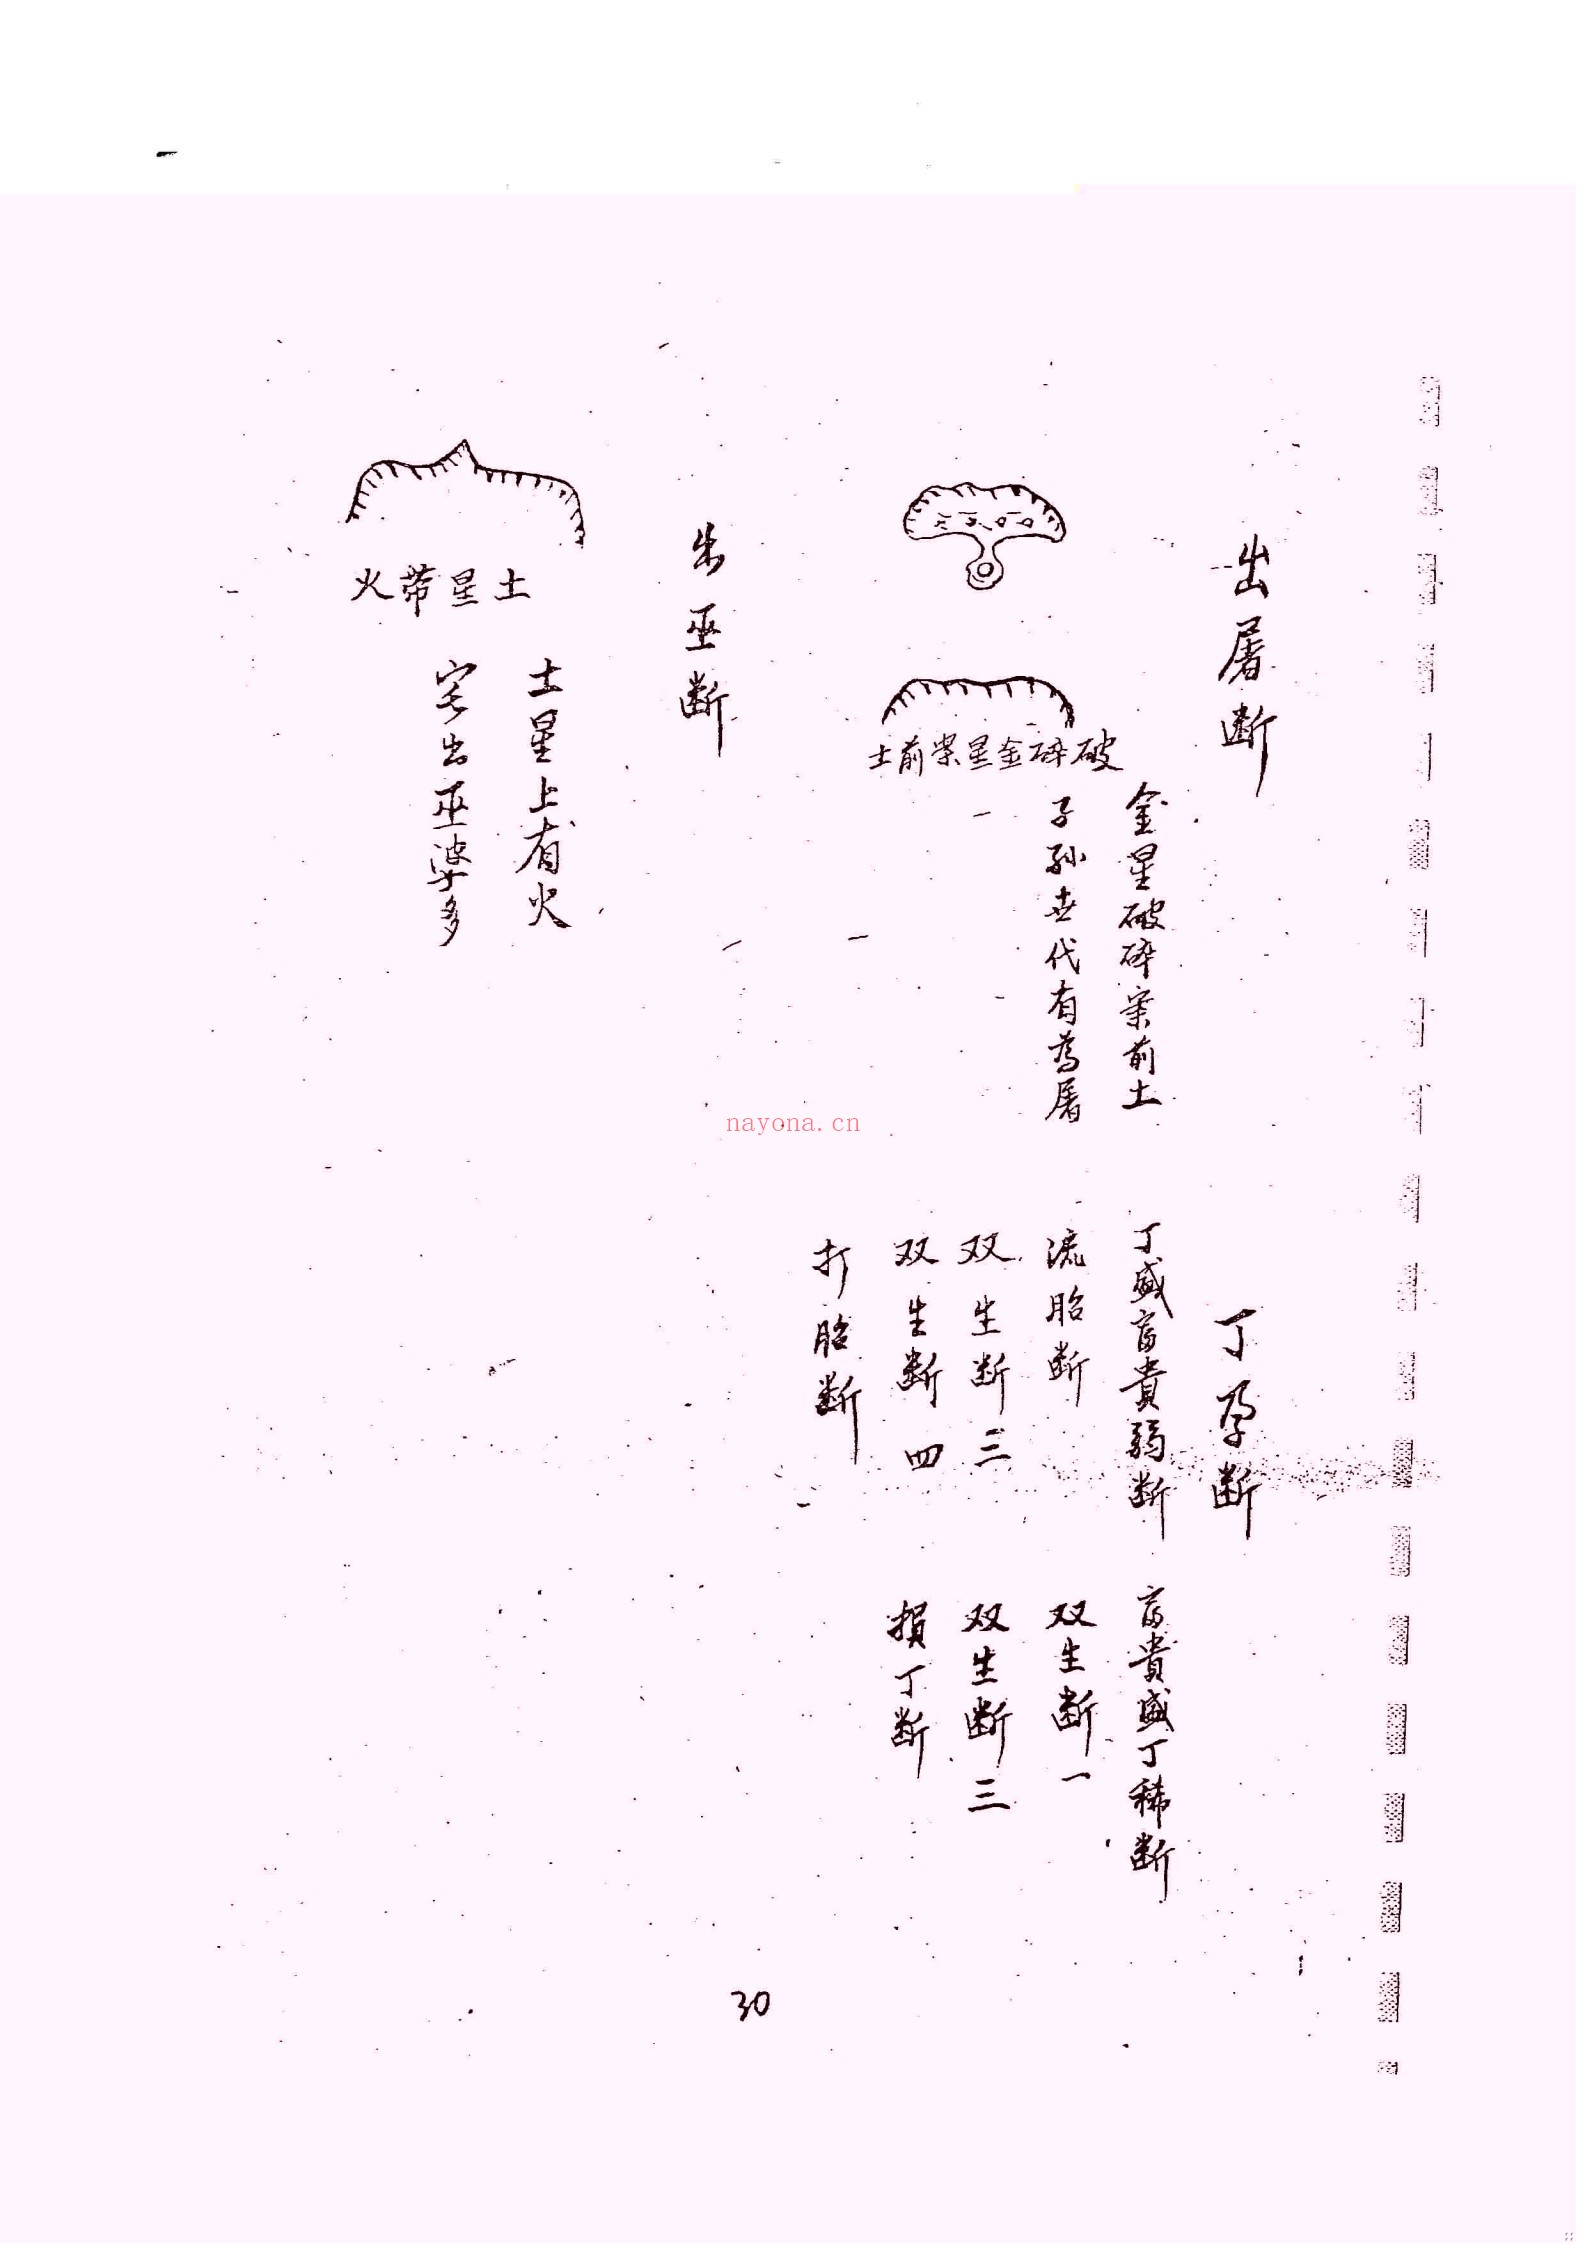 出屠断
破碎金星案前土
金星破碎案前土
子孙世代有為屠
出巫断
土星带火
土星上有火
宅出巫婆多
丁孕断
丁盛富貴弱断
富貴盛丁稀断
流胎断
双生断一
双生断三
双生断三
双生断四
損丁断
打胎断
30
nayona.cn